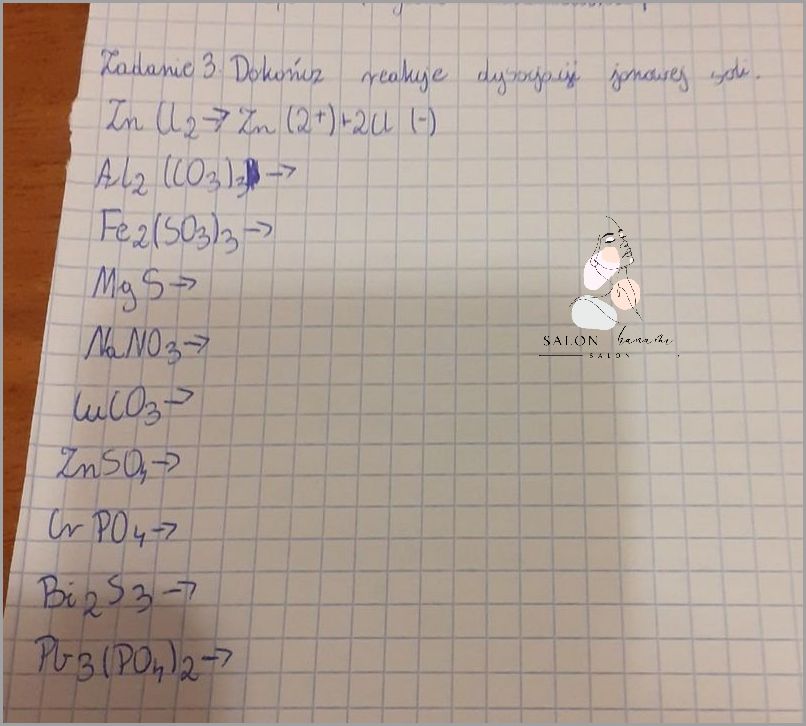 Zadanie 3. Dokończ reakcje dysocjacji jonowej soli.
ZnCl2→Zn (2+)+2Cl (-)
Al2(CO3)3→
Fe2(SO3)3→
MgS→
NaNO3→
CuCO3→
ZnSO4→
CrPO4→
Bi2S3→
Pb3(PO4)2→
SALON
SALON